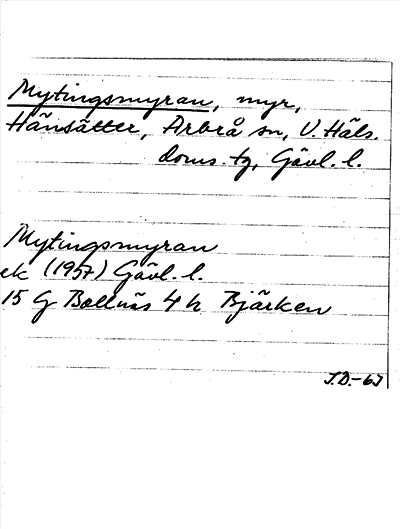 Mytingsmyran, myr,
Hänsätter, Arbrå sn, V. Häls.
doms. tg, Gävl. l.
Mytingsmyran
ek (1957) Gävl. l.
15 G Bollnäs 4 h Bjärken
J.D.-67